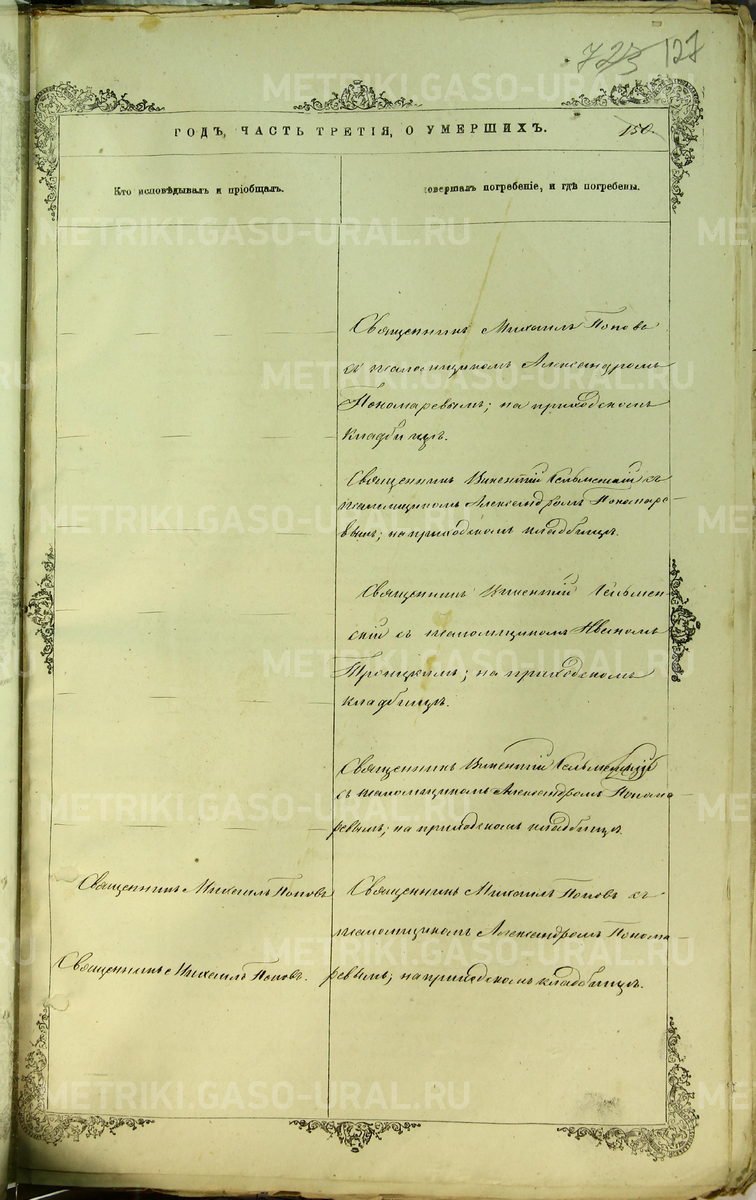 723 127
ГОДЪ, ЧАСТЬ ТРЕТІЯ, О УМЕРШИХЪ. 150.
Кто исповѣдывалъ и пріобщалъ.
совершалъ погребеніе, и гдѣ погребены.
Священникъ Михаилъ Поповъ
съ псаломщикомъ Александромъ
Пономаревымъ; на приходскомъ
кладбищѣ.
Священникъ Викентій Сельменскій съ
псаломщикомъ Александромъ Пономаре-
вымъ; на приходскомъ кладбищѣ.
Священникъ Викентій Сельмен-
скій съ псаломщикомъ Иваномъ
Троицкимъ; на приходскомъ
кладбищѣ.
Священникъ Викентій Сельменскій
съ псаломщикомъ Александромъ Понома-
ревымъ; на приходскомъ кладбищѣ.
Священникъ Михаилъ Поповъ
Священникъ Михаилъ Поповъ съ
псаломщикомъ Александромъ Понома-
Священникъ Михаилъ Поповъ.
ревымъ; на приходскомъ кладбищѣ.
METRIKI.GASO-URAL.RU